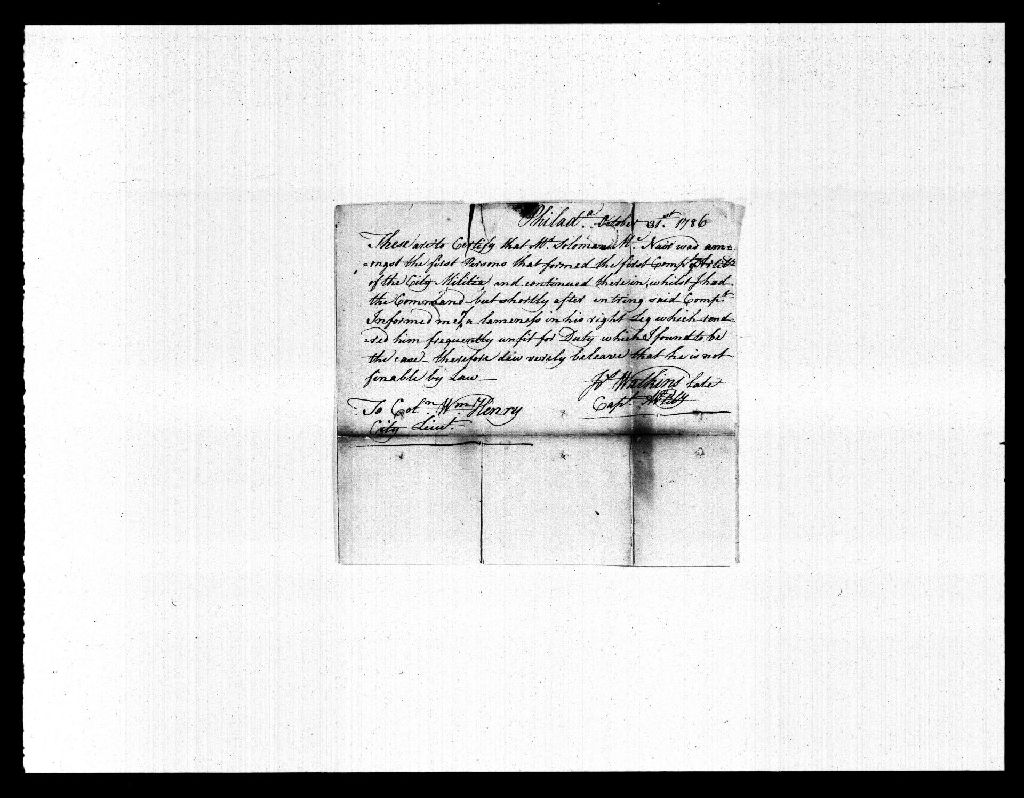 Philad.ª October 31.st 1786
These are to Certify that Mr. Solomon Mc. Nair was am=
=ongst the first Persons that formed the first Comp.y Artill.y
of the City Militia, and continued therein, whilst I had
the Command but shortly after entring said Comp.y
Informed me of a lameness in his right Leg which rend=
=red him frequently unfit for Duty which I found to be
the case – therefore I do verily beleave that he is not
finable by Law —
Js. Watkins Late
Capt.
To Col.n Wm. Henry
City Lieut.